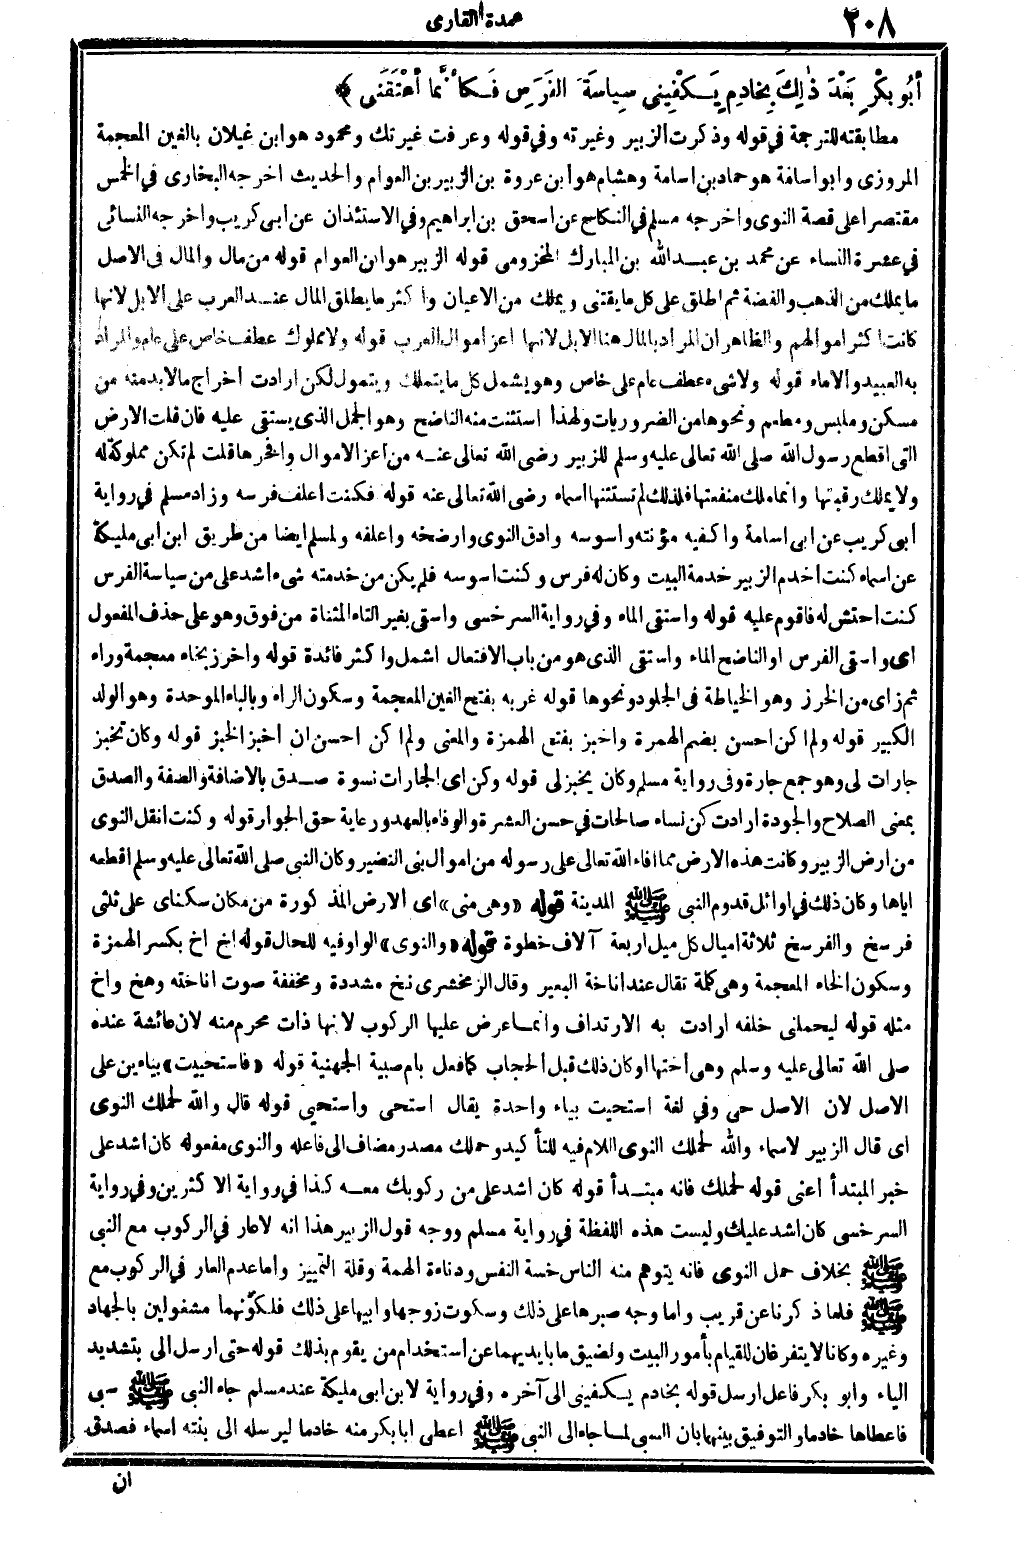 ٢٠٨
عمدة القارى
أَبُو بَكْرٍ بَعْدَ ذٰلِكَ بِخَادِمٍ يَكْفِينِي سِيَاسَةَ الفَرَسِ فَكَأَنَّمَا أَعْتَقَنِي ﴾
مطابقته للترجمة في قوله وذكرت الزبير وغيرته وفي قوله وعرفت غيرتك ومحمود هو ابن غيلان بالغين المعجمة
المروزى وابو اسامة هو حماد بن اسامة وهشام هو ابن عروة بن الزبير بن العوام والحديث اخرجه البخارى في الخمس
مقتصرا على قصة النوى واخرجه مسلم في النكاح عن اسحق بن ابراهيم وفي الاستئذان عن ابى كريب واخرجه النسائى
في عشرة النساء عن محمد بن عبد الله بن المبارك المخزومى قوله الزبير هو ابن العوام قوله من مال والمال في الاصل
ما يملك من الذهب والفضة ثم اطلق على كل ما يقتنى ويملك من الاعيان واكثر ما يطلق المال عند العرب على الابل لانها
كانت اكثر اموالهم والظاهر ان المراد بالمال هنا الابل لانها اعز اموال العرب قوله ولا مملوك عطف خاص على عام والمراد
به العبيد والاماء قوله ولا شىء عطف عام على خاص وهو يشمل كل ما يتملك ويتمول لكن ارادت اخراج مالا بد منه من
مسكن وملبس ومطعم ونحوها من الضروريات ولهذا استثنت منه الناضح وهو الجمل الذى يستقى عليه فان قلت الارض
التى اقطع رسول الله صلى الله تعالى عليه وسلم للزبير رضى الله تعالى عنه من اعز الاموال وافخرها قلت لم تكن مملوكة له
ولا يملك رقبتها وانما ملك منفعتها فلذلك لم تستثنها اسماء رضى الله تعالى عنه قوله فكنت اعلف فرسه وزاد مسلم في رواية
أبى كريب عن ابى اسامة واكفيه مؤنته واسوسه وادق النوى وارضخه واعلفه ولمسلم ايضا من طريق ابن ابى مليكة
عن اسماء كنت اخدم الزبير خدمة البيت وكان له فرس وكنت اسوسه فلم يكن من خدمته شىء اشد على من سياسة الفرس
كنت احتش له فاقوم عليه قوله واستقى الماء وفي رواية السرخسى واسقى بغير التاء المثناة من فوق وهو على حذف المفعول
اى واسقى الفرس او الناضح الماء واستقى الذى هو من باب الافتعال اشمل واكثر فائدة قوله واخرز بخاء معجمة وراء
ثم زاى من الخرز وهو الخياطة فى الجلود ونحوها قوله غربه بفتح الغين المعجمة وسكون الراء وبالباء الموحدة وهو الولد
الكبير قوله ولم اكن احسن بضم الهمزة واخبز بفتح الهمزة والمعنى ولم اكن احسن ان اخبز الخبز قوله وكان تخبز
جارات لى وهو جمع جارة وفى رواية مسلم وكان يخبز لى قوله وكن اى الجارات نسوة صدق بالاضافة والصفة والصدق
بمعنى الصلاح والجودة ارادت كن نساء صالحات في حسن العشرة والوفاء بالعهد ورعاية حق الجوار قوله وكنت انقل النوى
من ارض الزبير وكانت هذه الارض مما افاء الله تعالى على رسوله من اموال بنى النضير وكان النبى صلى الله تعالى عليه وسلم اقطعه
اياها وكان ذلك في اوائل قدوم النبى ﷺ المدينة قوله «وهى منى» اى الارض المذكورة من مكان سكناى على ثلثى
فرسخ والفرسخ ثلاثة اميال كل ميل اربعة آلاف خطوة قوله «والنوى» الواو فيه للحال قوله اخ اخ بكسر الهمزة
وسكون الخاء المعجمة وهى كلمة تقال عند اناخة البعير وقال الزمخشرى نخ مشددة ومخففة صوت اناخته وهخ واخ
مثله قوله ليحملنى خلفه ارادت به الارتداف وانما عرض عليها الركوب لانها ذات محرم منه لان عائشة عنده
صلى الله تعالى عليه وسلم وهى اختها او كان ذلك قبل الحجاب كما فعل بام صبية الجهنية قوله «فاستحييت» بياءين على
الاصل لان الاصل حى وفي لغة استحيت بياء واحدة يقال استحى واستحيى قوله قال والله لحملك النوى
اى قال الزبير لاسماء والله لحملك النوى اللام فيه للتأكيد وحملك مصدر مضاف الى فاعله والنوى مفعوله كان اشد على
خبر المبتدأ اعنى قوله لحملك فانه مبتدأ قوله كان اشد على من ركوبك معه كذا في رواية الاكثرين وفي رواية
السرخسى كان اشد عليك وليست هذه اللفظة في رواية مسلم ووجه قول الزبير هذا انه لا عار في الركوب مع النبى
ﷺ بخلاف حمل النوى فانه يتوهم منه الناس خسة النفس ودناءة الهمة وقلة التمييز واما عدم العار في الركوب مع
ﷺ فلما ذكرنا عن قريب واما وجه صبرها على ذلك وسكوت زوجها وابيها على ذلك فلكونهما مشغولين بالجهاد
وغيره وكانا لا يتفرغان للقيام بأمور البيت ولضيق ما بايديهما عن استخدام من يقوم بذلك قوله حتى ارسل الى بتشديد
الياء وابو بكر فاعل ارسل قوله بخادم يكفينى الى آخره وفي رواية لابن ابى مليكة عند مسلم جاء النبى ﷺ سبى
فاعطاها خادما والتوفيق بينهما بان السبى لما جاء الى النبى ﷺ اعطى ابا بكر منه خادما ليرسله الى بنته اسماء فصدق
ان